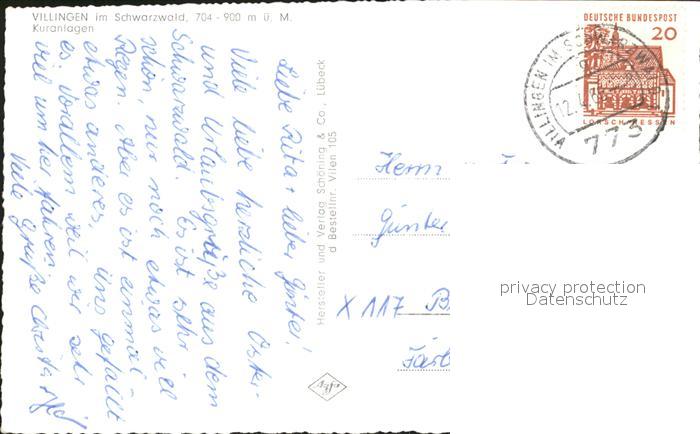 VILLINGEN im Schwarzwald, 704 - 900 m ü. M.
Kuranlagen
Liebe Rita + lieber Günter!
Viele liebe herzliche Oster-
und Urlaubsgrüße aus dem
Schwarzwald. Es ist sehr
schön, nur noch etwas viel
Regen. Aber es ist einmal
etwas anderes. Uns gefällt
es, vorallem weil wir sehr
viel umher fahren.
Viele Grüße Christa +
Hersteller und Verlag Schöning & Co., Lübeck
d Bestellnr. Vilen 105
DEUTSCHE BUNDESPOST
20
LORSCH HESSEN
VILLINGEN IM SCHWARZWALD
12.4.
773
Herrn
Günter
X 117 B
privacy protection
Datenschutz